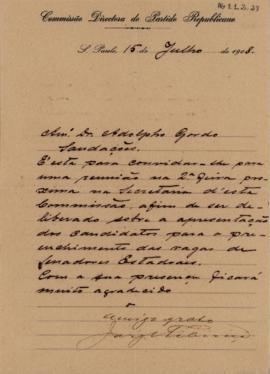 Commissão Directora do Partido Republicano
S. Paulo, 15 de Julho de 1908.
Am.º Dr. Adolpho Gordo
Saudações.
E'sta para convidar-se para
uma reunião na 2ª feira pro-
xima na Secretaria d'esta
Commissão, afim de ser de-
liberado sobre a apresentação
dos candidatos para o pre-
enchimento das vagas de
Senadores Estadoaes.
Com a sua presença ficará
muito agradecido
o
amigo grato
Jorge Tibiriçá